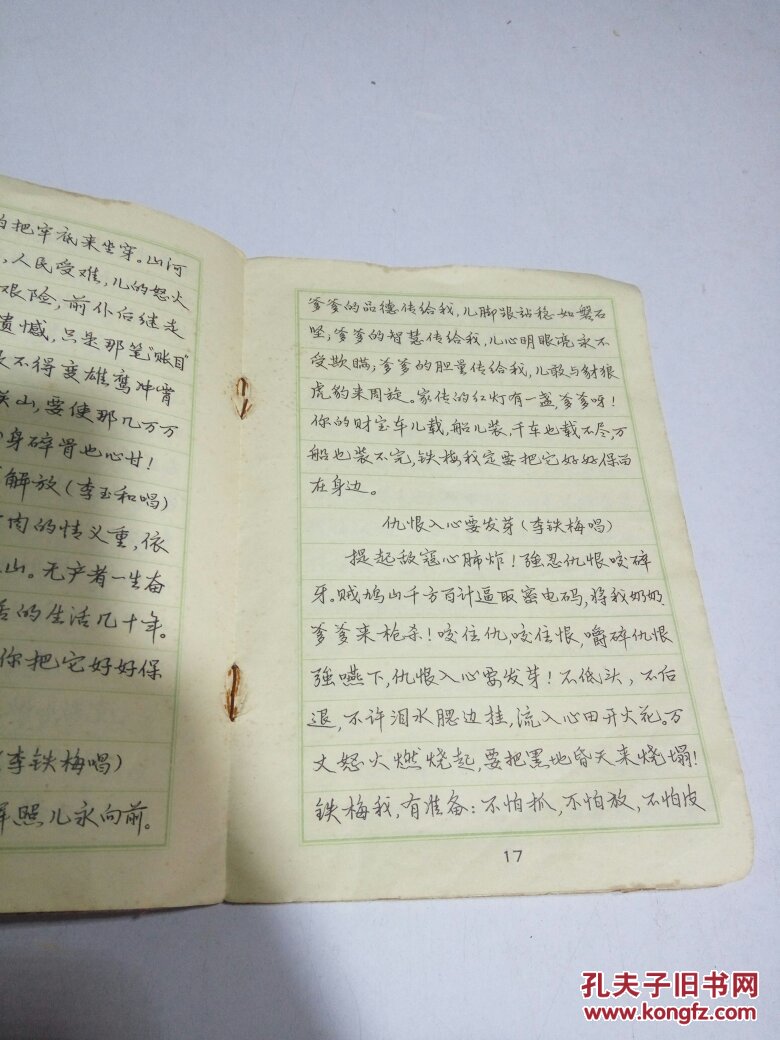 把牢底来坐穿。山河
，人民受难，儿的怒火
艰险，前仆后继走
遗憾，只是那笔“账目”
不得变雄鹰冲霄
山，要使那几万万
身碎骨也心甘！
解放（李玉和唱）
肉的情义重，依
山。无产者一生奋
的生活几十年。
你把它好好保
（李铁梅唱）
照儿永向前。
爹爹的品德传给我，儿脚跟站稳如磐石
坚；爹爹的智慧传给我，儿心明眼亮永不
受欺瞒；爹爹的胆量传给我，儿敢与豺狼
虎豹来周旋。家传的红灯有一盏，爹爹呀！
你的财宝车儿载，船儿装，千车也载不尽，万
船也装不完，铁梅我定要把它好好保留
在身边。
仇恨入心要发芽（李铁梅唱）
提起敌寇心肺炸！强忍仇恨咬碎
牙。贼鸠山千方百计逼取密电码，将我奶奶
爹爹来枪杀！咬住仇，咬住恨，嚼碎仇恨
强咽下，仇恨入心要发芽！不低头，不后
退，不许泪水腮边挂，流入心田开火花。万
丈怒火燃烧起，要把黑地昏天来烧塌！
铁梅我，有准备：不怕抓，不怕放，不怕皮
17
孔夫子旧书网
www.kongfz.com